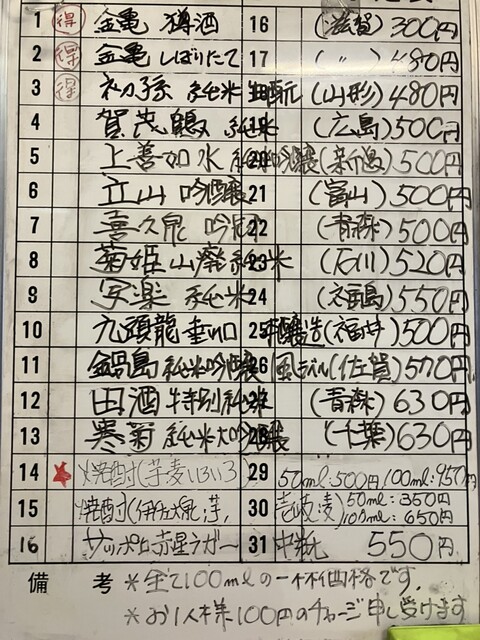 1 得 金亀 樽酒 16 (滋賀) 300円
2 得 金亀 しぼりたて 17 ( 〃 ) 480円
3 得 初孫 純米 生酛 (山形) 480円
4 賀茂鶴 純米 (広島) 500円
5 上善如水 純米吟醸 (新潟) 500円
6 立山 吟醸 21 (富山) 500円
7 喜久泉 吟 22 (青森) 500円
8 菊姫 山廃純米 23 (石川) 520円
9 純米 24 (福島) 550円
10 九頭龍 垂口 25 本醸造 (福井) 500円
11 鍋島 純米吟醸 26 風ラベル (佐賀) 570円
12 田酒 特別純米 (青森) 630円
13 寒菊 純米大吟醸 (千葉) 630円
14 ★ 焼酎(芋麦いろいろ 29 50ml:500円,100ml:950円
15 焼酎(伊佐大泉:芋, 30 壱岐凌) 50ml:350円 100ml:650円
16 サッポロ赤星ラガー 31 中瓶 550円
備考 *全て100mlの一杯価格です。
*お1人様100円のチャージ申し受けます